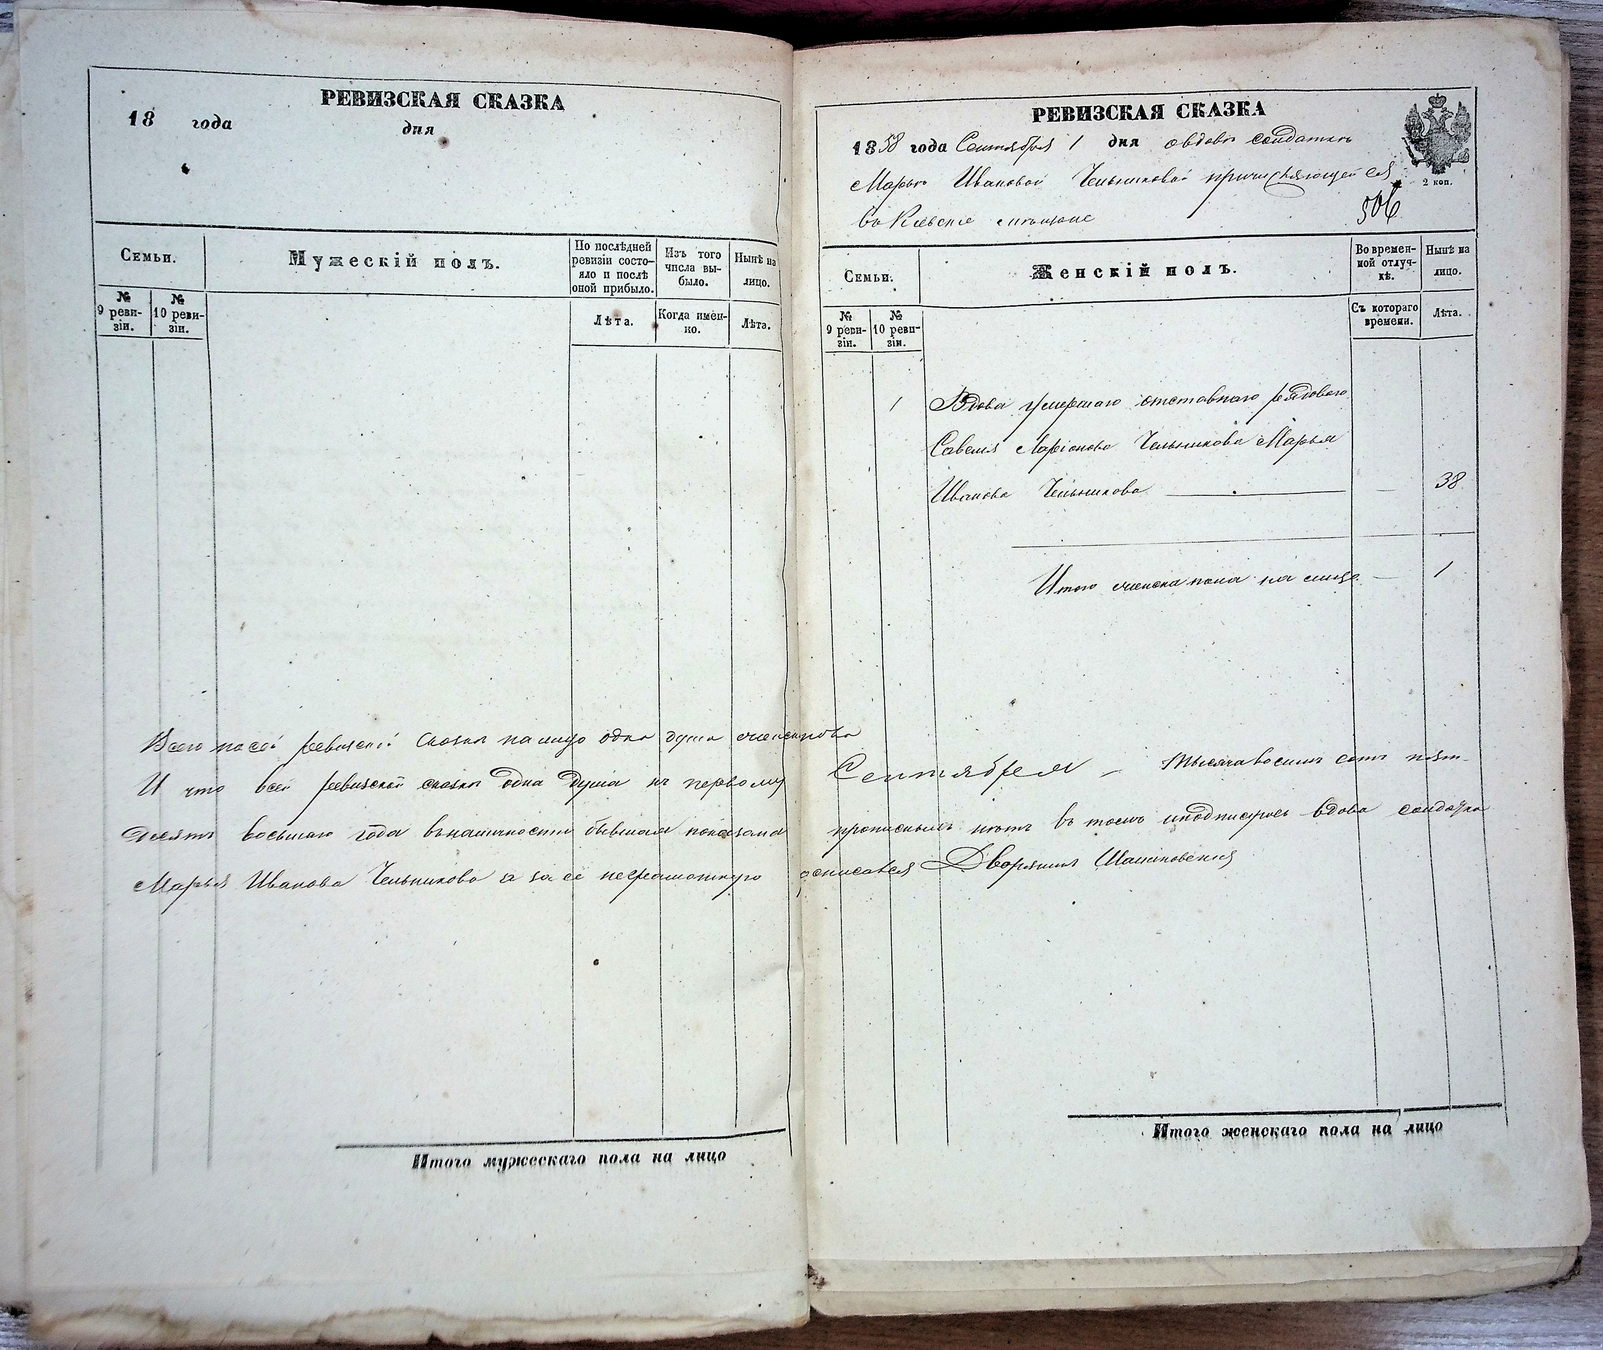 РЕВИЗСКАЯ СКАЗКА
18 года дня
Семьи.
Мужескій полъ.
По послѣдней ревизіи состояло и послѣ оной прибыло.
Изъ того числа выбыло.
Нынѣ на лицо.
№ 9 ревизіи.
№ 10 ревизіи.
Лѣта.
Когда именно.
Лѣта.
Всего по сей ревизской сказкѣ на лицо одна душа
И что всей ревизской сказкѣ одна душа къ первому
десятъ восьмаго года въ наличности бывшая показана
Марья Иванова Чельникова а за её неграмотную
Итого мужескаго пола на лицо
РЕВИЗСКАЯ СКАЗКА
1858 года Сентября 1 дня о вдовѣ солдаткѣ
Марьѣ Ивановой Чельниковой причисляющейся
въ Кіевские мѣщане
2 коп.
506
Семьи.
Женскій полъ.
Во временной отлучкѣ.
Нынѣ на лицо.
№ 9 ревизіи.
№ 10 ревизіи.
Съ котораго времени.
Лѣта.
1 Вдова умершаго отставнаго рядового
Савелія Ларіонова Чельникова Марья
Иванова Чельникова — 38
Итого женска пола на лицо — 1
Сентября – тысяча восемь сотъ пят-
прописныхъ нѣтъ въ томъ и подписуюсь вдова солдатка
Дворянинъ
Итого женскаго пола на лицо